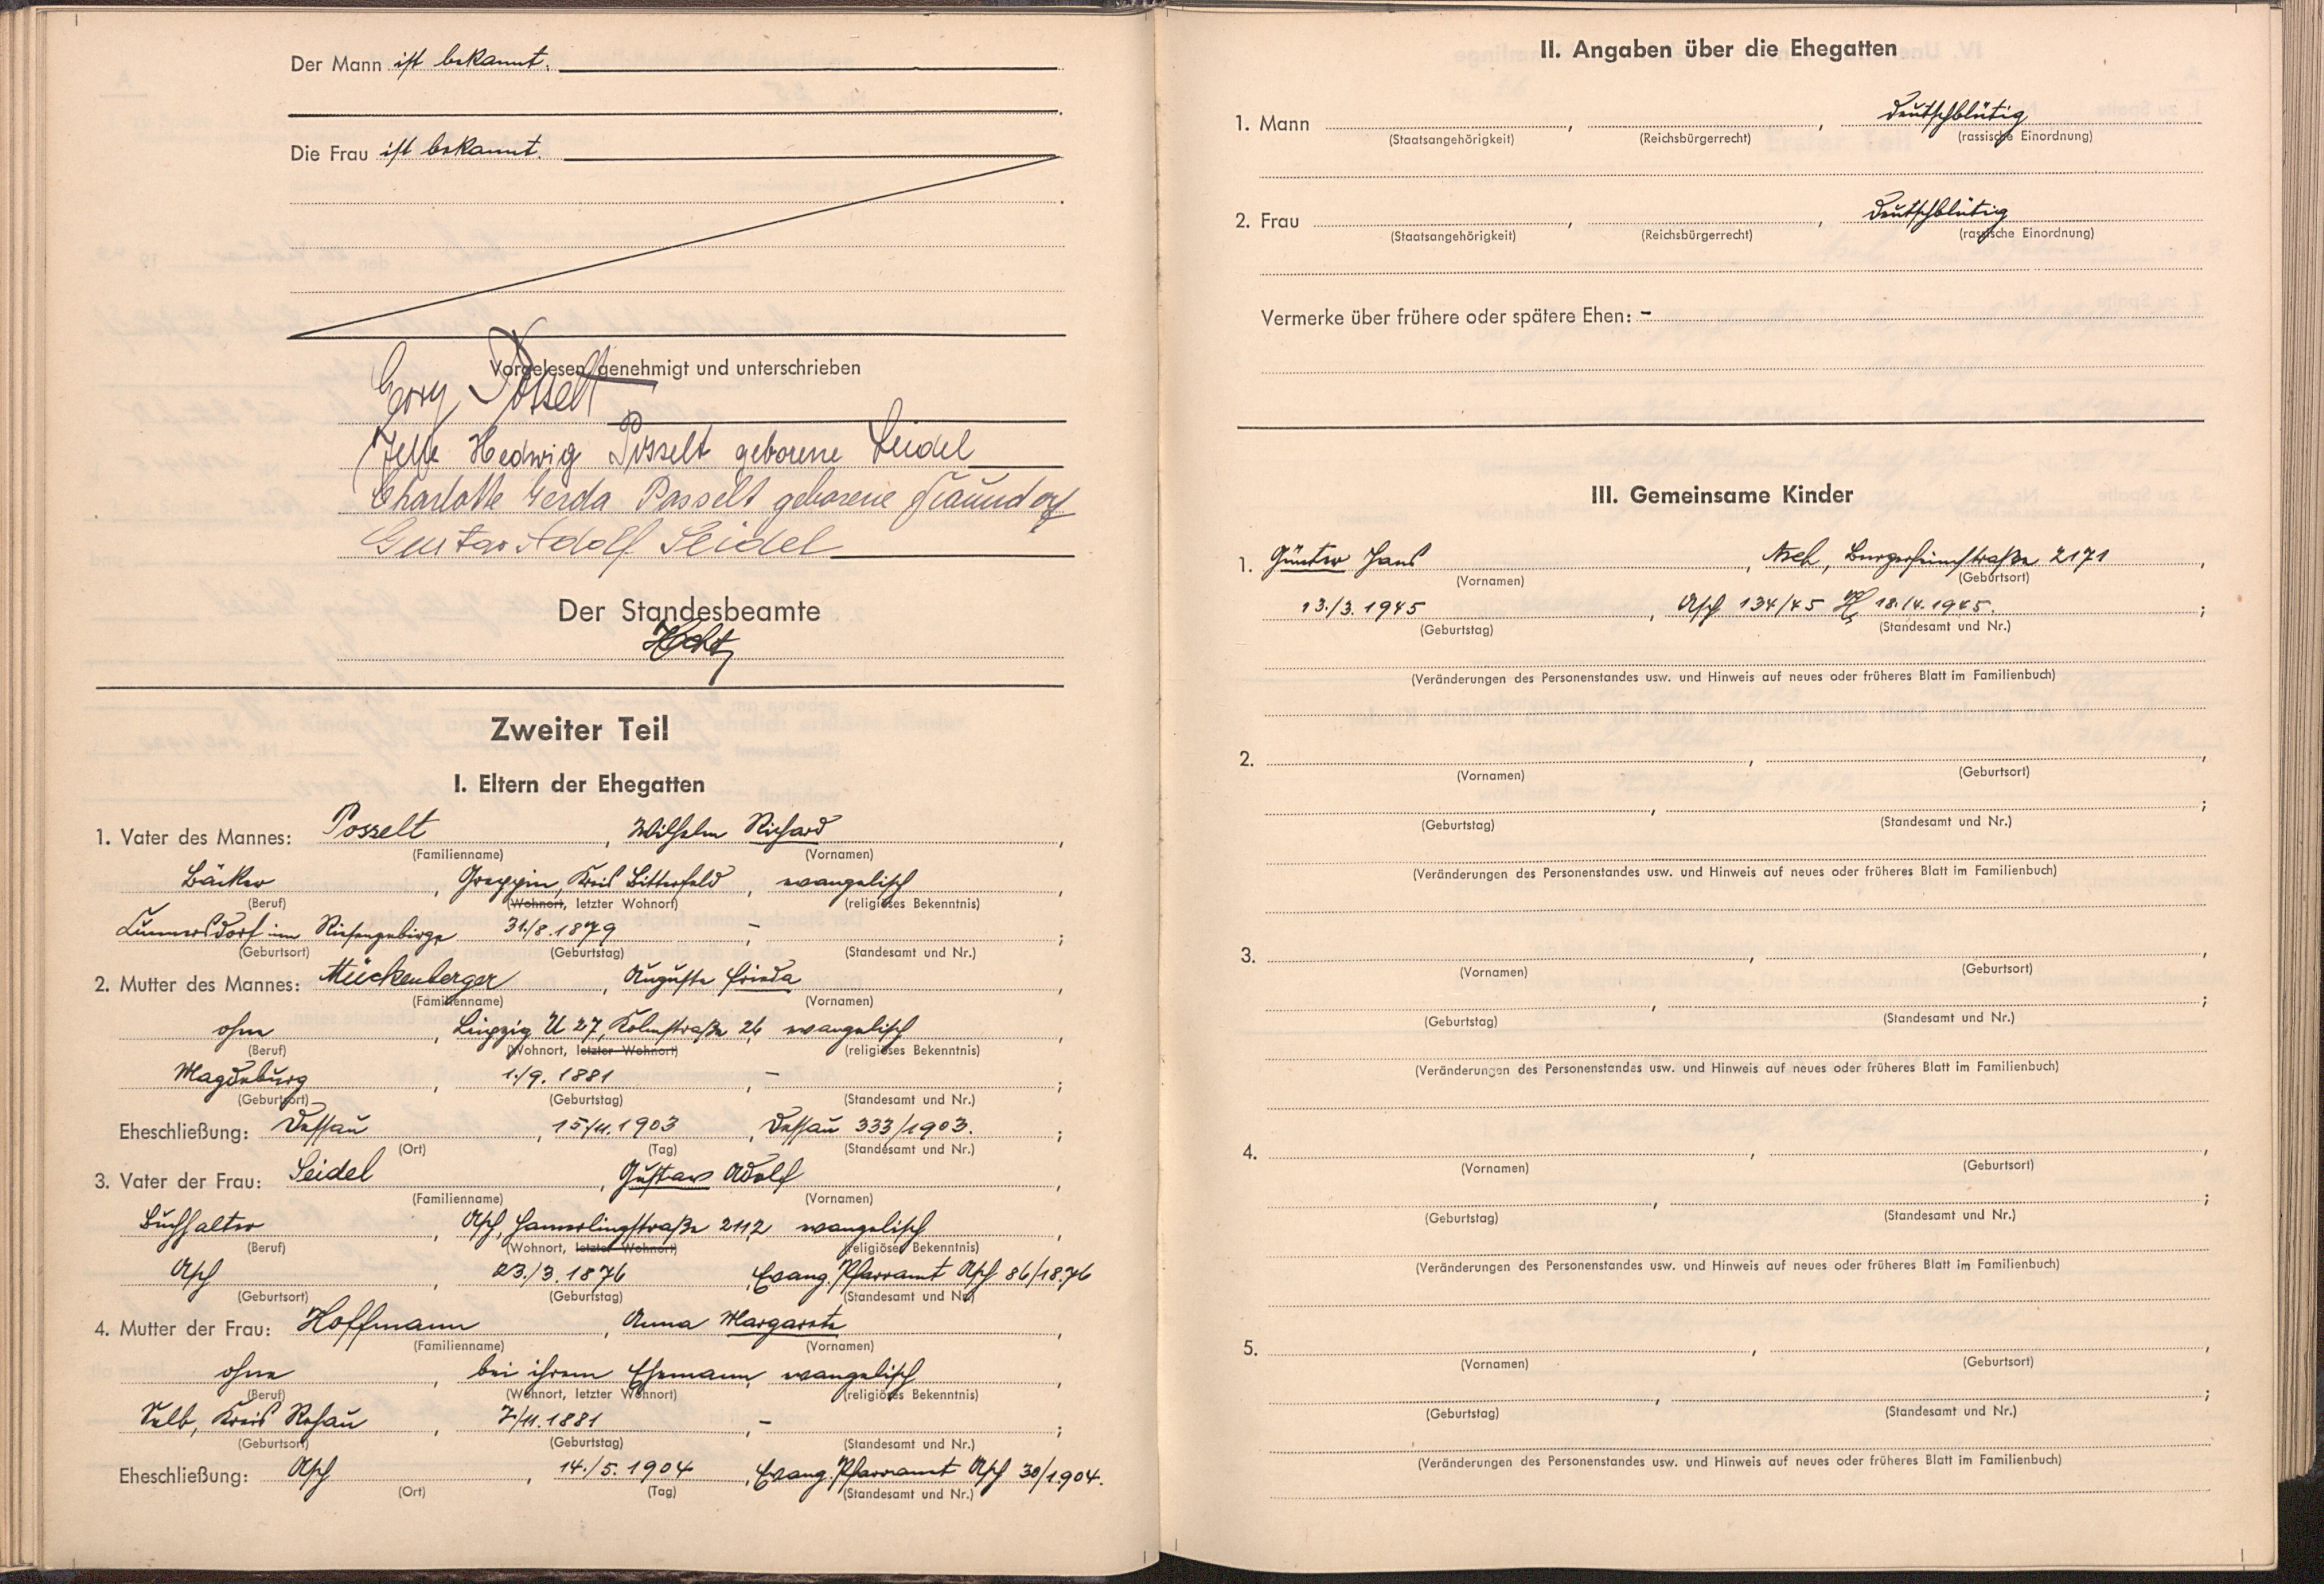 Der Mann ist bekannt.
Die Frau ist bekannt.
Vorgelesen, genehmigt und unterschrieben
Georg Posselt
Hedwig Posselt geborene Seidel
Charlotte Gerda Posselt geborene Naundorf
Gustav Adolf Seidel
Der Standesbeamte
Zweiter Teil
I. Eltern der Ehegatten
1. Vater des Mannes: Posselt, Wilhelm Richard,
(Familienname) (Vornamen)
Bäcker, Greppin, Kreis Bitterfeld, evangelisch,
(Beruf) (Wohnort, letzter Wohnort) (religiöses Bekenntnis)
im Riesengebirge 31./8.1879, - ;
(Geburtsort) (Geburtstag) (Standesamt und Nr.)
2. Mutter des Mannes: Mückenberger, Auguste Frieda,
(Familienname) (Vornamen)
ohne, Leipzig 27, Kolmstraße 26, evangelisch,
(Beruf) (Wohnort, letzter Wohnort) (religiöses Bekenntnis)
Magdeburg, 1./9.1881, - ;
(Geburtsort) (Geburtstag) (Standesamt und Nr.)
Eheschließung: Dessau, 15/11.1903, Dessau 333/1903. ;
(Ort) (Tag) (Standesamt und Nr.)
3. Vater der Frau: Seidel, Gustav Adolf,
(Familienname) (Vornamen)
Buchhalter, Asch, Hamerlingstraße 2112, evangelisch,
(Beruf) (Wohnort, letzter Wohnort) (religiöses Bekenntnis)
Asch, 23./3.1876, Evang. Pfarramt Asch 86/1876
(Geburtsort) (Geburtstag) (Standesamt und Nr.)
4. Mutter der Frau: Hoffmann, Anna Margarete,
(Familienname) (Vornamen)
ohne, bei ihrem Ehemann, evangelisch,
(Beruf) (Wohnort, letzter Wohnort) (religiöses Bekenntnis)
Selb, Kreis Rehau, 7/11.1881, - ;
(Geburtsort) (Geburtstag) (Standesamt und Nr.)
Eheschließung: Asch, 14./5.1904, Evang. Pfarramt Asch 30/1904.
(Ort) (Tag) (Standesamt und Nr.)
II. Angaben über die Ehegatten
1. Mann , , deutschblütig
(Staatsangehörigkeit) (Reichsbürgerrecht) (rassische Einordnung)
2. Frau , , deutschblütig
(Staatsangehörigkeit) (Reichsbürgerrecht) (rassische Einordnung)
Vermerke über frühere oder spätere Ehen: -
III. Gemeinsame Kinder
1. Günter Hans, Asch, Burgerheimstraße 2171,
(Vornamen) (Geburtsort)
13./3.1945, Asch 134/45 18./4.1945. ;
(Geburtstag) (Standesamt und Nr.)
(Veränderungen des Personenstandes usw. und Hinweis auf neues oder früheres Blatt im Familienbuch)
2. , ,
(Vornamen) (Geburtsort)
, ;
(Geburtstag) (Standesamt und Nr.)
(Veränderungen des Personenstandes usw. und Hinweis auf neues oder früheres Blatt im Familienbuch)
3. , ,
(Vornamen) (Geburtsort)
, ;
(Geburtstag) (Standesamt und Nr.)
(Veränderungen des Personenstandes usw. und Hinweis auf neues oder früheres Blatt im Familienbuch)
4. , ,
(Vornamen) (Geburtsort)
, ;
(Geburtstag) (Standesamt und Nr.)
(Veränderungen des Personenstandes usw. und Hinweis auf neues oder früheres Blatt im Familienbuch)
5. , ,
(Vornamen) (Geburtsort)
, ;
(Geburtstag) (Standesamt und Nr.)
(Veränderungen des Personenstandes usw. und Hinweis auf neues oder früheres Blatt im Familienbuch)